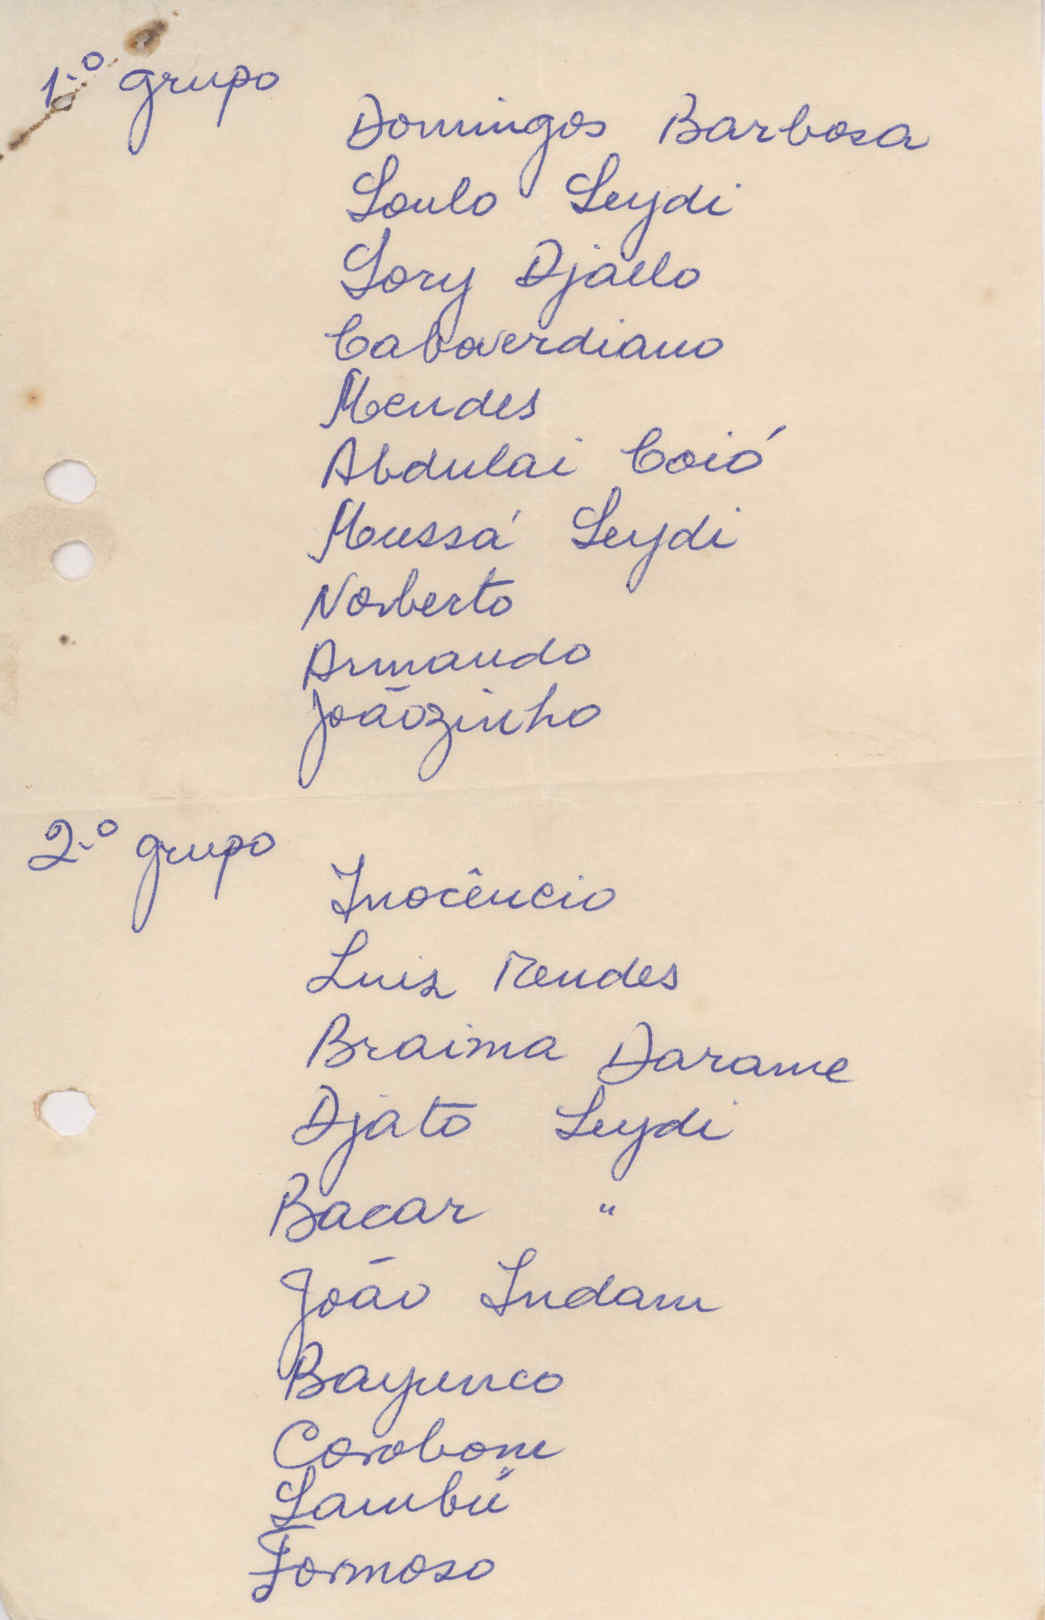 1.º grupo
Domingos Barbosa
Soulo Seydi
Sory Djallo
Caboverdiano
Mendes
Abdulai Coió
Mussá Seydi
Norberto
Armando
Joãozinho
2.º grupo
Inocêncio
Luiz Mendes
Braima Darame
Djato Seydi
Bacar "
João Indam
Bayunco
Corobom
Sambú
Formoso